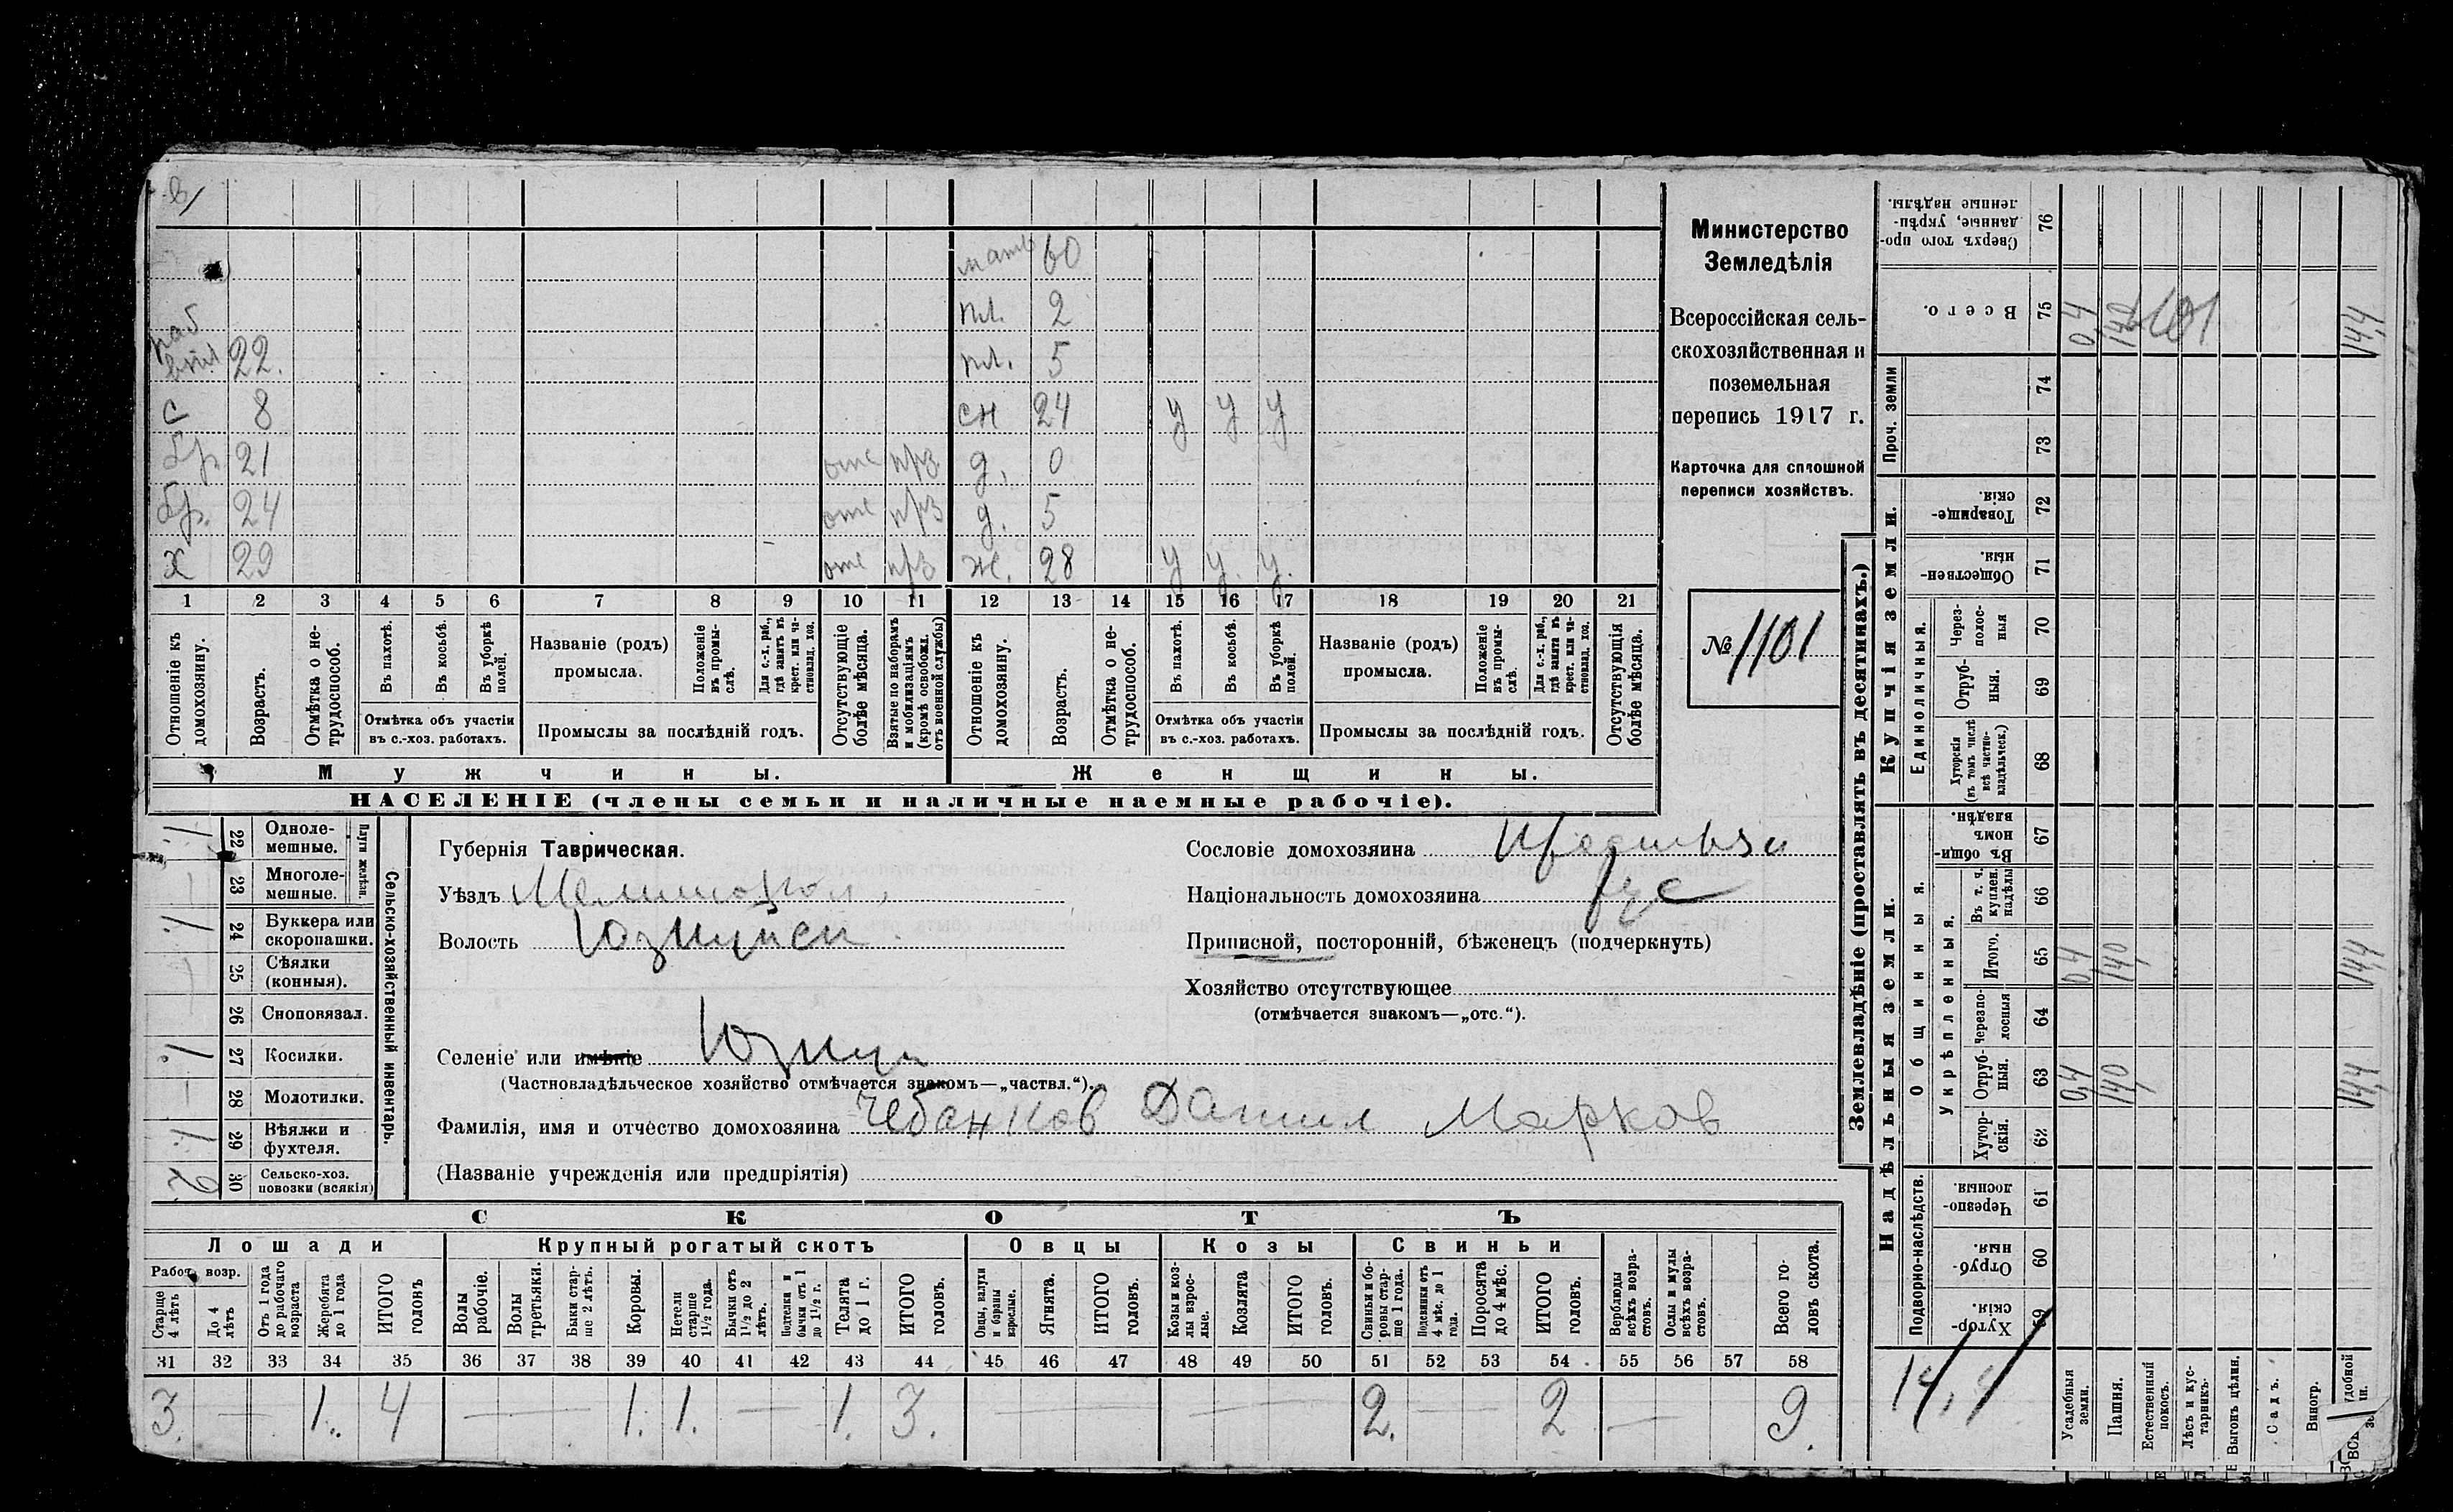 мать 60
пл. 2
раб
впл 22. пл. 5
с 8 сн 24 у у у
бр. 21 отс прз. д. 0
бр. 24 отс прз д. 5
х 29 отс прз ж. 28 у у. у.
1 2 3 4 5 6 7 8 9 10 11 12 13 14 15 16 17 18 19 20 21
Отношеніе къ домохозяину.
Возрастъ.
Отмѣтка о не-трудоспособ.
Въ пахотѣ.
Въ косьбѣ.
Въ уборкѣ полей.
Отмѣтка объ участіи
въ с.-хоз. работахъ.
Названіе (родъ)
промысла.
Положеніе въ промы-слѣ.
Для с.-х. раб., гдѣ занятъ въ крест. или ча-стновлад. хоз.
Промыслы за послѣдній годъ.
Отсутствующіе болѣе мѣсяца.
Взятые по наборамъ и мобилизаціямъ (кромѣ освобожд. отъ военной службы)
Отношеніе къ домохозяину.
Возрастъ.
Отмѣтка о не-трудоспособ.
Въ пахотѣ.
Въ косьбѣ.
Въ уборкѣ полей.
Отмѣтка объ участіи
въ с.-хоз. работахъ.
Названіе (родъ)
промысла.
Положеніе въ промы-слѣ.
Для с.-х. раб., гдѣ занята въ крест. или ча-стновлад. хоз.
Промыслы за послѣдній годъ.
Отсутствующія болѣе мѣсяца.
Мужчины. Женщины.
НАСЕЛЕНІЕ (члены семьи и наличные наемные рабочіе).
Министерство
Земледѣлія
Всероссійская сель-
скохозяйственная и
поземельная
перепись 1917 г.
Карточка для сплошной
переписи хозяйствъ.
№ 1101
Сельско-хозяйственный инвентарь.
Плуги желѣзн.
22 Одноле-мешные. 1
23 Многоле-мешные. —
24 Буккера или скоропашки. 1
25 Сѣялки (конныя). —
26 Сноповязал. —
27 Косилки. 1
28 Молотилки. —
29 Вѣялки и фухтеля. 1
30 Сельско-хоз. повозки (всякія) 2
Губернія Таврическая.
Уѣздъ Мелитопол.
Волость
Селеніе или имѣніе
(Частновладѣльческое хозяйство отмѣчается знакомъ—„частвл.“).
Фамилія, имя и отчество домохозяина Чебанков Данил Марков
(Названіе учрежденія или предпріятія)
Сословіе домохозяина
Національность домохозяина рус
Приписной, посторонній, бѣженецъ (подчеркнуть)
Хозяйство отсутствующее
(отмѣчается знакомъ—„отс.“).
СКОТЪ
Лошади Крупный рогатый скотъ Овцы Козы Свиньи
Рабоч. возр.
Старше 4 лѣтъ
До 4 лѣтъ
Отъ 1 года до рабочаго возраста
Жеребята до 1 года
ИТОГО головъ
Волы рабочіе.
Волы третьяки.
Быки стар-ше 2 лѣтъ.
Коровы.
Нетели старше 1½ года.
Бычки отъ 1½ до 2 лѣтъ.
Подтелки и бычки отъ 1 до 1½ г.
Телята до 1 г.
ИТОГО головъ.
Овцы, валухи и бараны взрослые.
Ягнята.
ИТОГО головъ.
Козы и коз-лы взрос-лые.
Козлята
ИТОГО головъ.
Свиньи и бо-ровы стар-ше 1 года.
Подсвинки отъ 4 мѣс. до 1 года.
Поросята до 4 мѣс.
ИТОГО головъ.
Верблюды всѣхъ возра-стовъ.
Ослы и мулы всѣхъ возра-стовъ.
Всего го-ловъ скота.
31 32 33 34 35 36 37 38 39 40 41 42 43 44 45 46 47 48 49 50 51 52 53 54 55 56 57 58
3. — 1. 4 — 1. 1. — 1. 3. — — 2. — 2 — 9.
Землевладѣніе (проставлять въ десятинахъ.)
Надѣльныя земли. Купчія земли.
Подворно-наслѣдств.
Общинныя.
Укрѣпленныя.
Единоличныя.
Проч. земли
59 Хутор-скія.
60 Отруб-ныя.
61 Черезпо-лосныя.
62 Хутор-скія.
63 Отруб-ныя. 0,4 14,0 14,4
64 Черезпо-лосныя
65 Итого. 0,4 14,0 14,4
66 Въ т. ч. куплен. надѣлы
67 Въ общин-номъ владѣн.
68 Хуторскія (въ томъ числѣ всѣ частно-владѣльческ.)
69 Отруб-ныя.
70 Через-полос-ныя
71 Обществен-ныя.
72 Товарище-скія.
73
74
75 Всего. 0,4 14,0 1101 14,4
76 Сверхъ того про-данные, укрѣп-ленные надѣлы.
14,4
Усадебныя земли.
Пашня.
Естественный покосъ.
Лѣсъ и кус-тарникъ.
Выгонъ цѣлин.
Садъ.
Виногр.